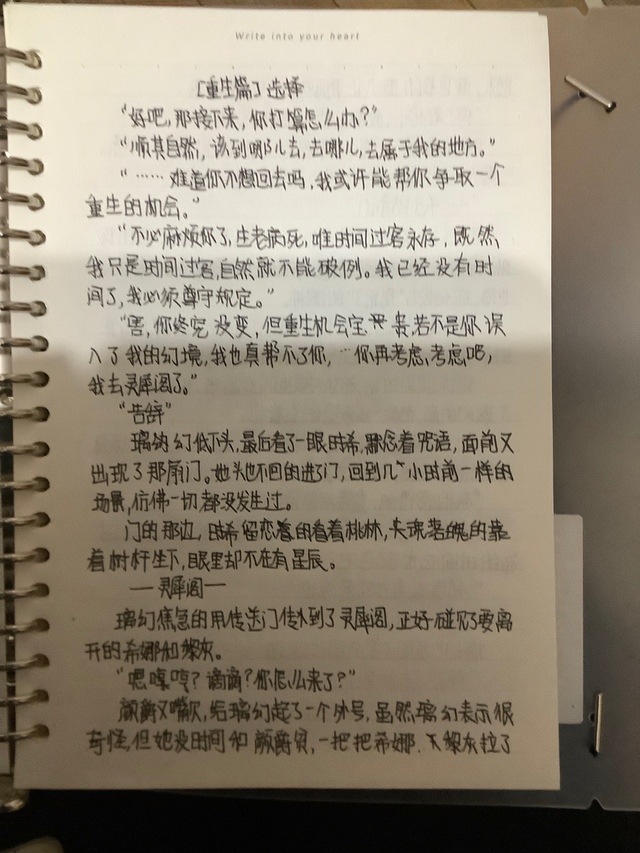 Write into your heart
［重生篇］选择
“好吧，那接下来，你打算怎么办？”
“顺其自然，该到哪儿去，去哪儿，去属于我的地方。”
“……难道你不想回去吗，我或许能帮你争取一个
重生的机会。”
“不必麻烦你了，生老病死，唯时间过客永存，既然
我只是时间过客，自然就不能破例。我已经没有时
间了，我必须尊守规定。”
“害，你终究没变，但重生机会宝贵，若不是你误
入了我的幻境，我也真帮不了你，…你再考虑，考虑吧，
我去灵犀阁了。”
“告辞”
璃幻低下头，最后看了一眼时希，默念着咒语，面前又
出现了那扇门。她头也不回的进了门，回到几个小时前一样的
场景，仿佛一切都没发生过。
门的那边，时希留恋着的看着桃林，失魂落魄的靠
着树杆坐下，眼里却不在有星辰。
——灵犀阁——
璃幻焦急的用传送门传到了灵犀阁，正好碰见了要离
开的希娜和黎灰。
“嗯嘿哼？滴滴？你怎么来了？”
颜爵又嘴欠，给璃幻起了一个外号，虽然璃幻表示很
奇怪，但她没时间和颜爵贫，一把把希娜、黎灰拉了